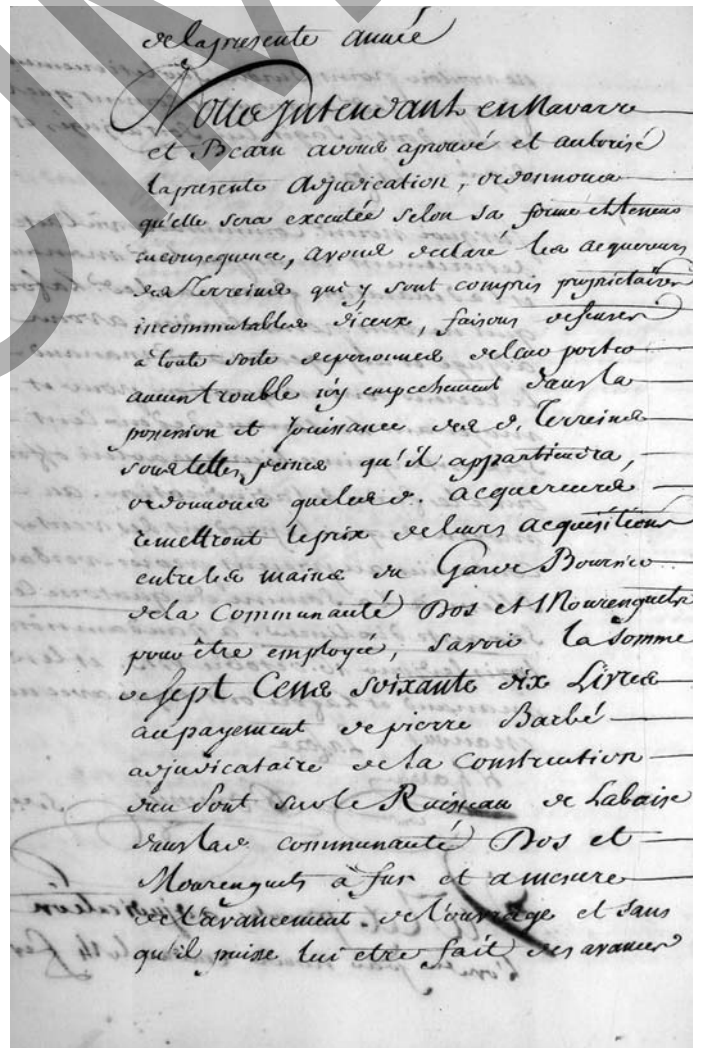 de la presente année
Nous Intendant en Navarre
et Bearn avons aprouvé et autorisé
la presente Adjudication, ordonnons
qu'elle sera executée selon sa forme et teneur
en consequence, avons declaré les acquereurs
des Terreins qui y sont compris proprietaires
incommutables d'iceux, faisons defenses
à toute sorte de personnes de leur porter
aucun trouble ny empechement dans la
possession et jouissance des d. Terreins
sous telles peines qu'il appartiendra,
ordonnons que les d. acquereurs
remettront le prix de leurs acquisitions
entre les mains du Garde Boursier
de la Communauté Dos et Mourenguets
pour être employée, Savoir la Somme
de Sept Cens soixante dix Livres
au payement de pierre Barbé
adjudicataire de la Construction
du Pont sur le Ruisseau de Labaise
dans lad. communauté Dos et
Mourenguets à fur et a mesure
de l'avancement de l'ouvrage et sans
qu'il puisse lui etre fait des avances